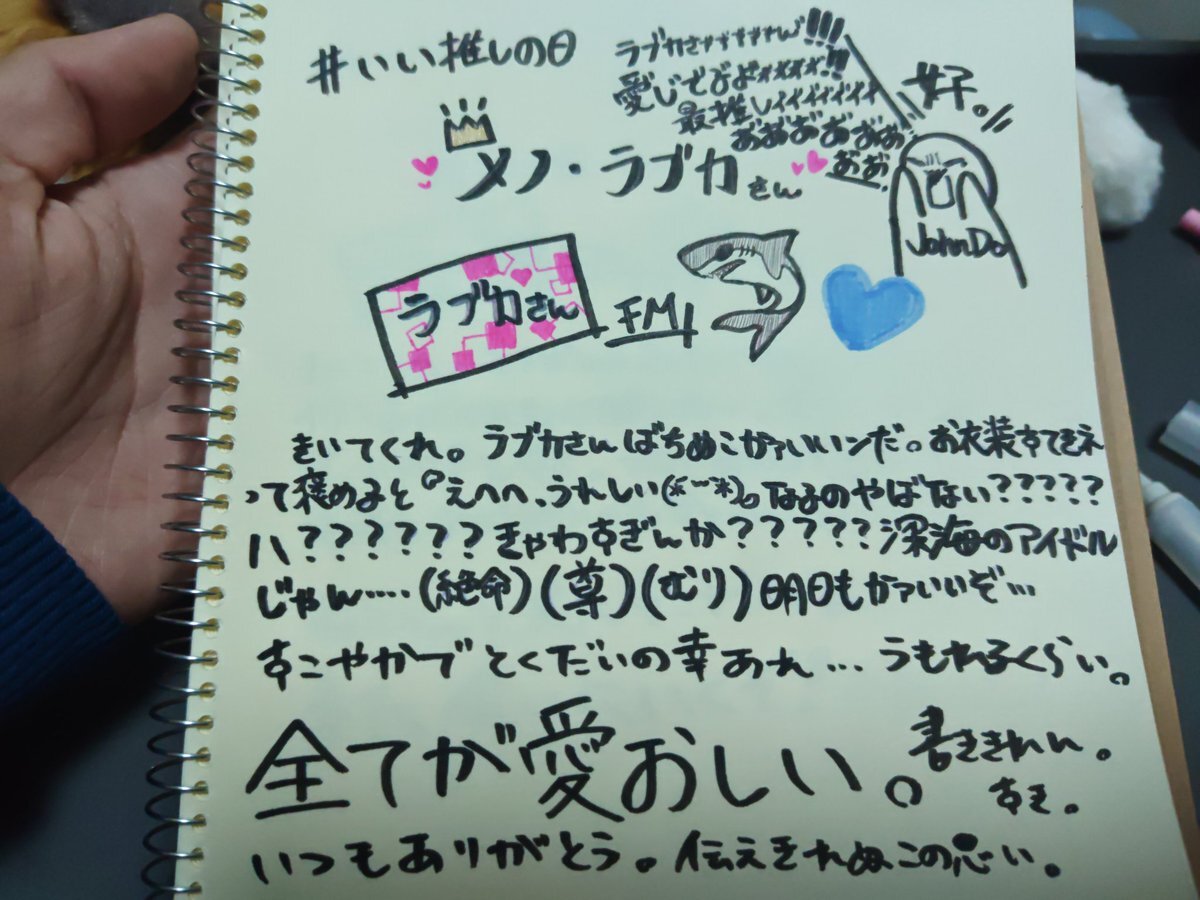 #いい推しの日
ラブカさァァァァァん!!!
愛しでるよォォォォ!!!
最推しイイイイイイイ
おおおおおおお
おお
好。
メノ・ラブカさん
JohnDo
ラブカさん
FM
きいてくれ。ラブカさんばちぬこかァいいンだ。お衣装すてきネ
って褒めると『えへへ、うれしい(*˘︶˘*)』なるのやばない?????
ハ??????きゃわすぎんか?????深海のアイドル
じゃん……(絶命)(尊)(むり)明日もかァいいぞ…
すこやかでとくだいの幸あれ…うもれるくらい。
全てが愛おしい。
書ききれん。
すき。
いつもありがとう。伝えきれぬこの思い。